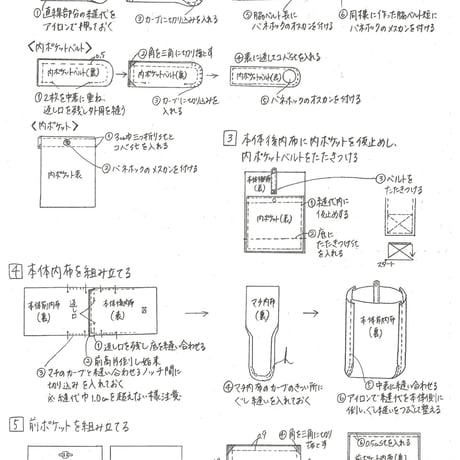 ①直線部分の縫代を
アイロンで押ておく
③カーブに切り込みを入れる
⑤脇ベルト長に
バネホックのオスカンを付ける
⑥同様に作った脇ベルト短に
バネホックのメスカンを付ける
<内ポケットベルト>
0.5
内ポケットベルト(裏)
①2枚を中表に重ね、
返し口を残し外周を縫う
②角を三角に切り落とす
内ポケットベルト(裏)
③カーブに切り込みを
入れる
④表に返してコバステを入れる
内ポケットベルト(表)
⑤バネホックのオスカンを付ける
<内ポケット>
①3cm巾三ッ折りSTと
コバSTを入れる
②バネホックのメスカンを付ける
内ポケット表
3 本体後内布に内ポケットを仮止めし、
内ポケットベルトをたたきつける
本体後内布
(表)
内ポケット(表)
①縫代内に
仮止めする
②底に
たたきつけSTを
入れる
③ベルトを
たたきつける
スタート
4 本体内布を組み立てる
本体前内布
(裏)
返し口
本体後内布
(裏)
①返し口を残し底を縫い合わせる
②前高片倒し始末
③マチのカーブと縫い合わせるノッチ間に
切り込みを入れておく
※縫代巾1.0cmを超えない様注意
マチ内布
(裏)
④マチ内布のカーブのきつい所に
ぐし縫いを入れておく
本体前内布
(裏)
⑤中表に縫い合わせる
⑥アイロンで縫代を本体側に
倒し、ぐし縫いをつぶして整える
5 前ポケットを組み立てる
0.7
④角を三角に切り
落とす
⑥0.5cmSTを入れる
前ポケット内布(表)